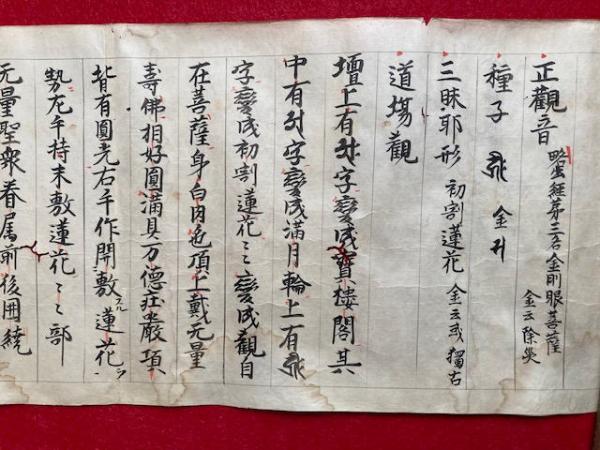 正觀音
略出經第三名金剛眼菩薩
金云除災
種子 金
三昧耶形 初割蓮花 金云或獨古
道場觀
壇上有字變成寶樓閣其
中有字變成滿月輪上有
字變成初割蓮花〻〻變成觀自
在菩薩身白肉色頂上戴无量
壽佛相好圓滿具万德庄嚴項
背有圓光右手作開敷蓮花
勢左手持未敷蓮花〻〻部
无量聖衆眷属前後囲繞